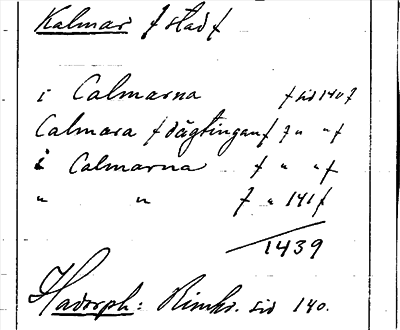 Kalmar [stad]
i Calmarna [sid 140]
Calmara [dågtingan] [" "]
i Calmarna [" "]
" " [" 141]
1439
Hadorph: Rimkr. sid 140.